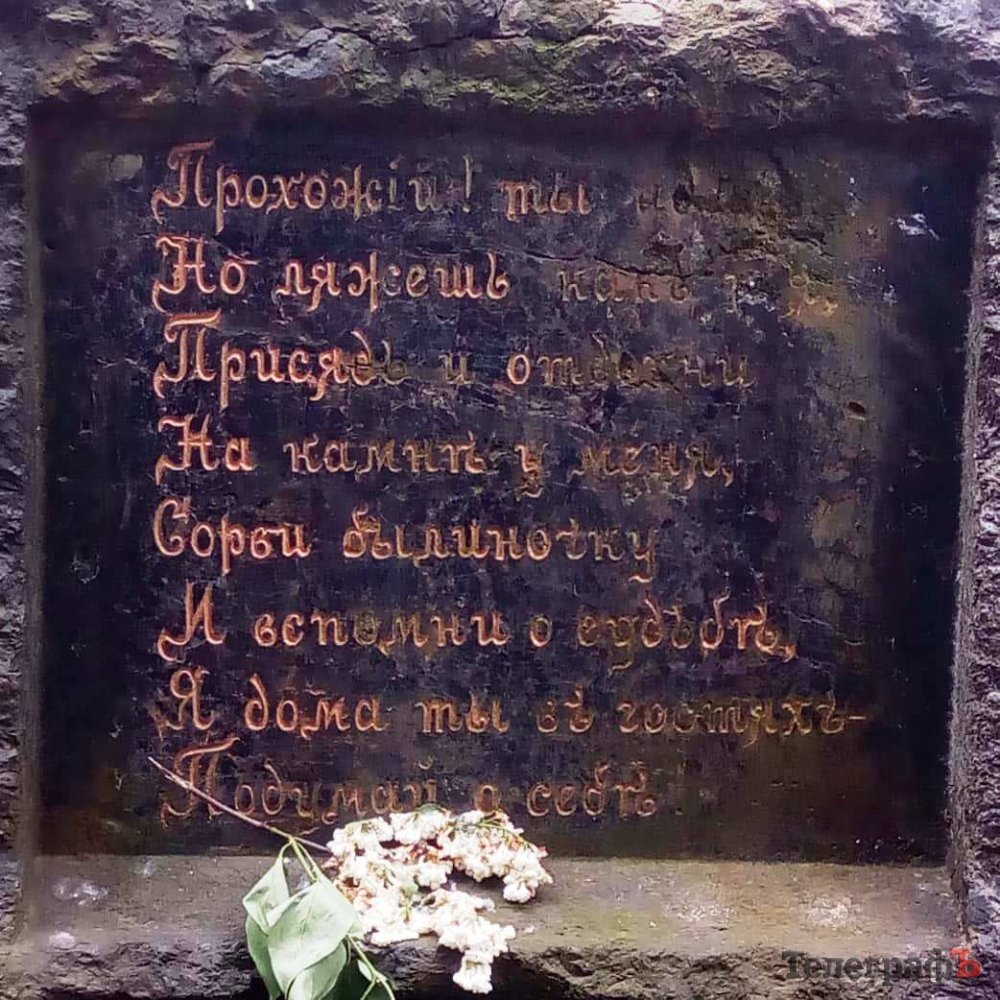 Прохожій! ты
Но ляжешь какъ я,
Присядь и отдохни
На камнѣ у меня,
Сорви былиночку
И вспомни о судьбѣ,
Я дома ты въ гостяхъ-
Подумай о себѣ
ТелеграфЪ